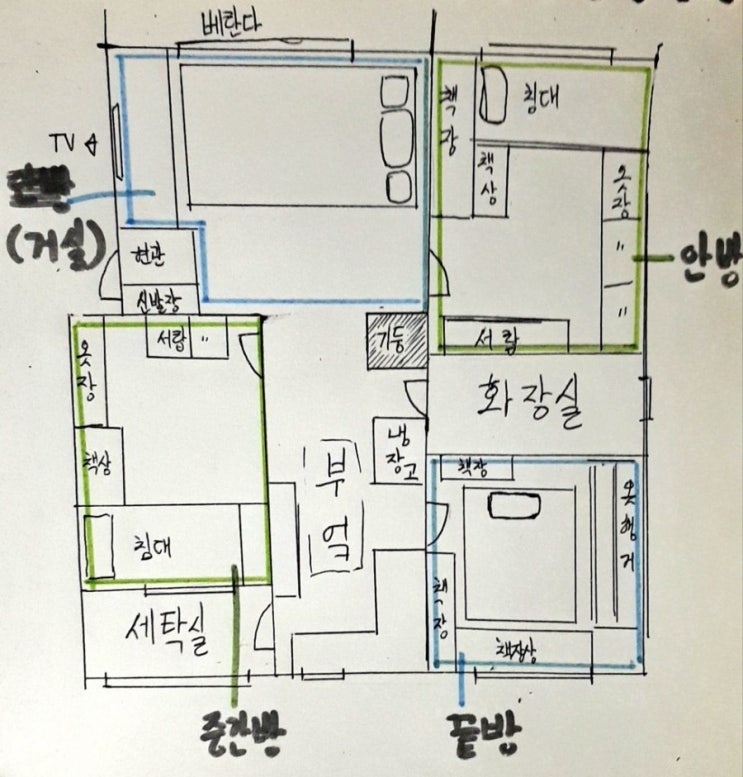 베란다
TV
(거실)
현관
신발장
책장
침대
책상
옷장
"
"
안방
서랍
기둥
화장실
냉장고
부엌
서랍 "
옷장
책상
침대
세탁실
중간방
책장
옷행거
책장
책상
끝방